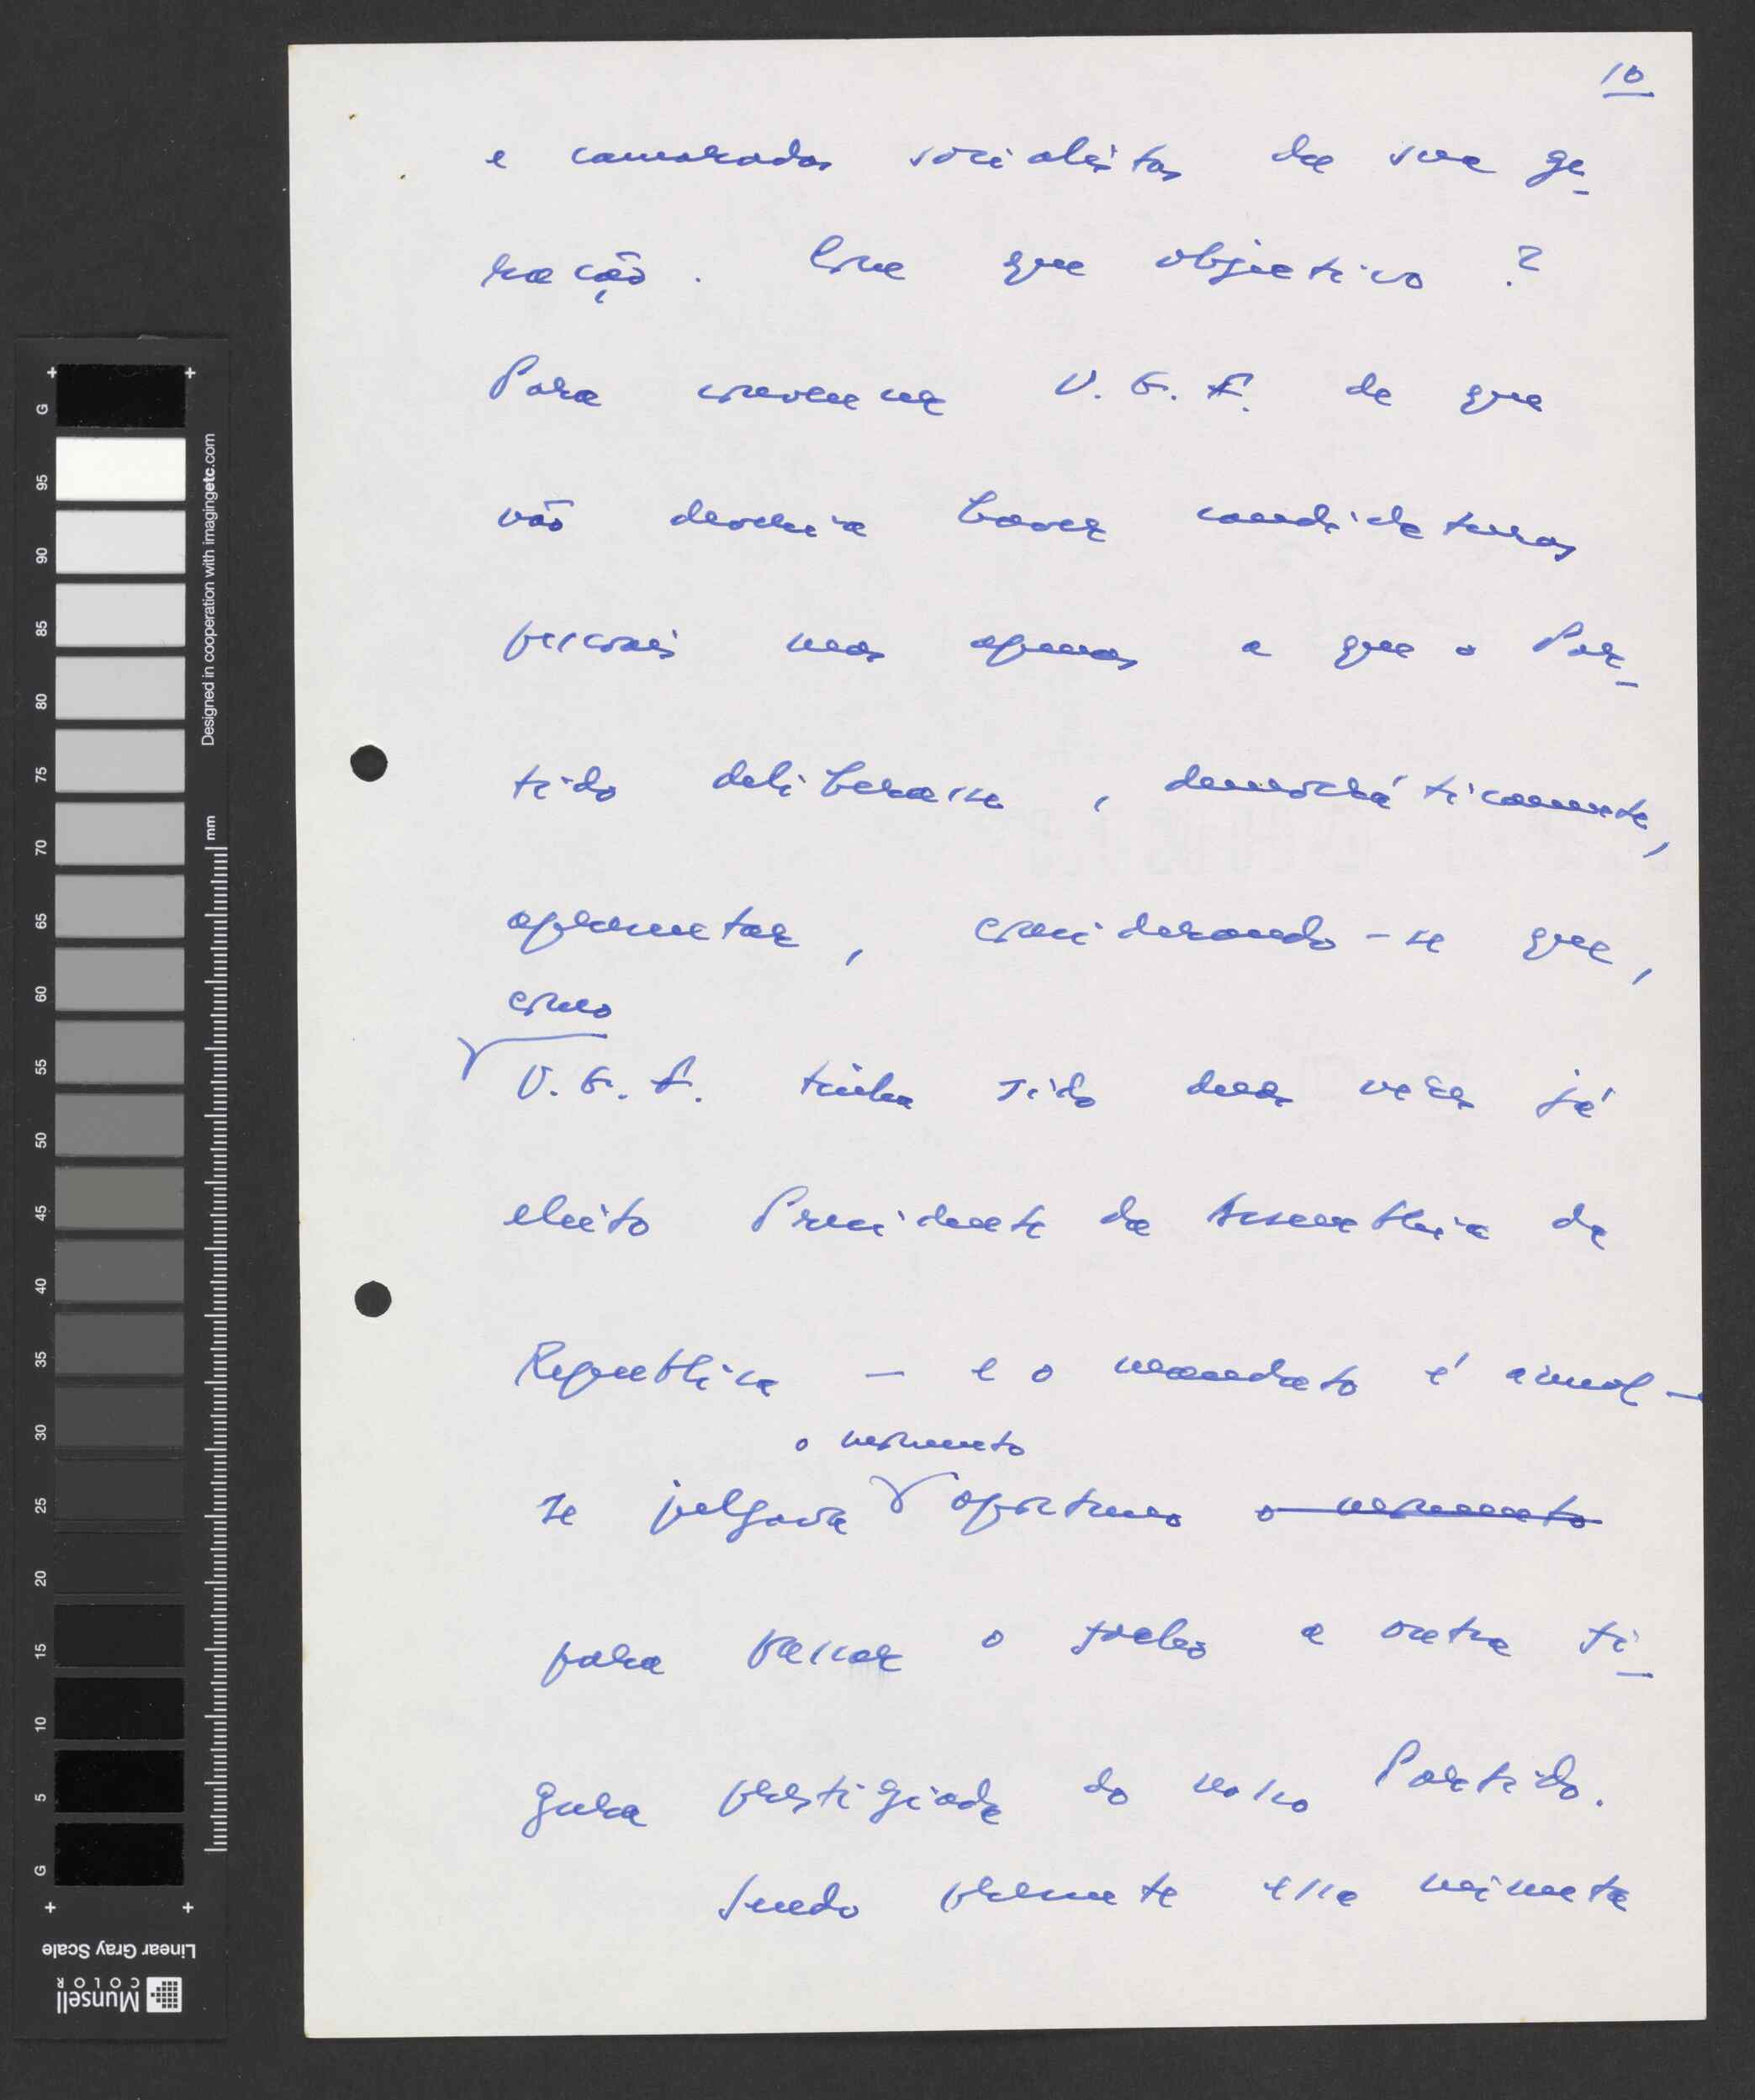 10
e camaradas socialistas da sua ge-
ração. Com que objectivo?
Para convencer V. G. F. de que
não deveria haver candidaturas
pessoais mas apenas a que o Par-
tido deliberasse, democráticamente,
apresentar, considerando-se que,
como
V. G. F. tinha sido duas vezes já
eleito Presidente da Assembleia da
Republica — e o mandato é anual —
o momento
se julgava oportuno o momento
para passar o facho a outra fi-
gura prestigiada do nosso Partido.
Sendo presente essa minuta
G 95 90 85 80 75 70 65 60 55 50 45 40 35 30 25 20 15 10 5 G
Designed in cooperation with imagingetc.com
mm
Linear Gray Scale
Munsell
COLOR